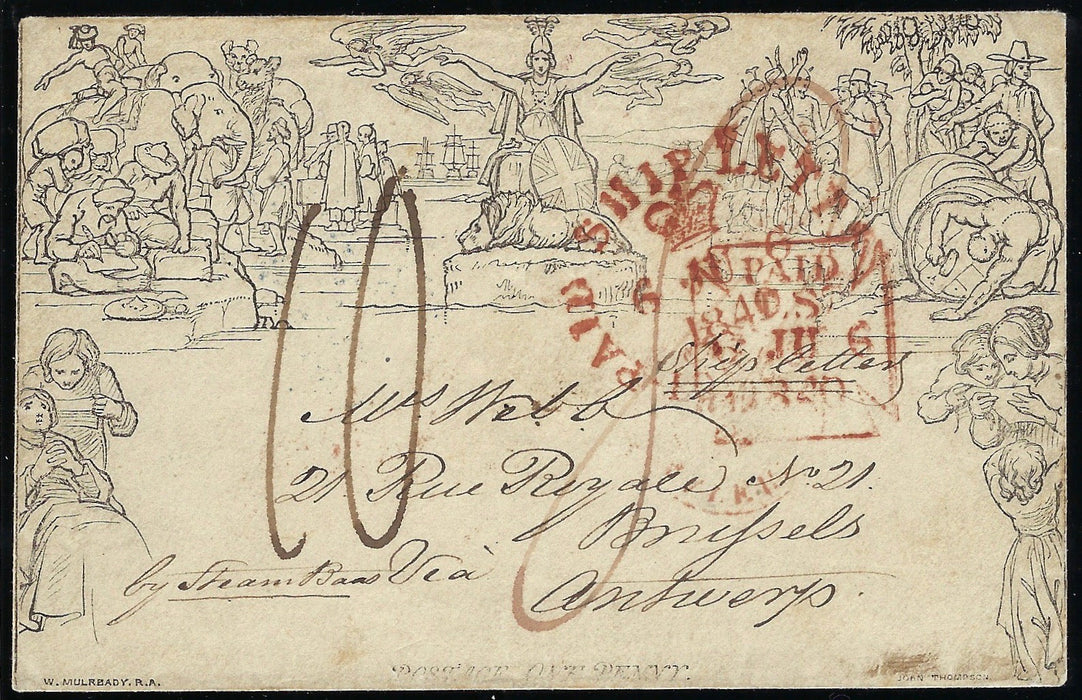 PAID SHIP LETTER
PAID
1840
JU
10
Ship letter
Mrs Webb
21 Rue Royale No. 21.
Brussels
by Steam Baas Via
Antwerp.
W. MULREADY, R.A.
JOHN THOMPSON